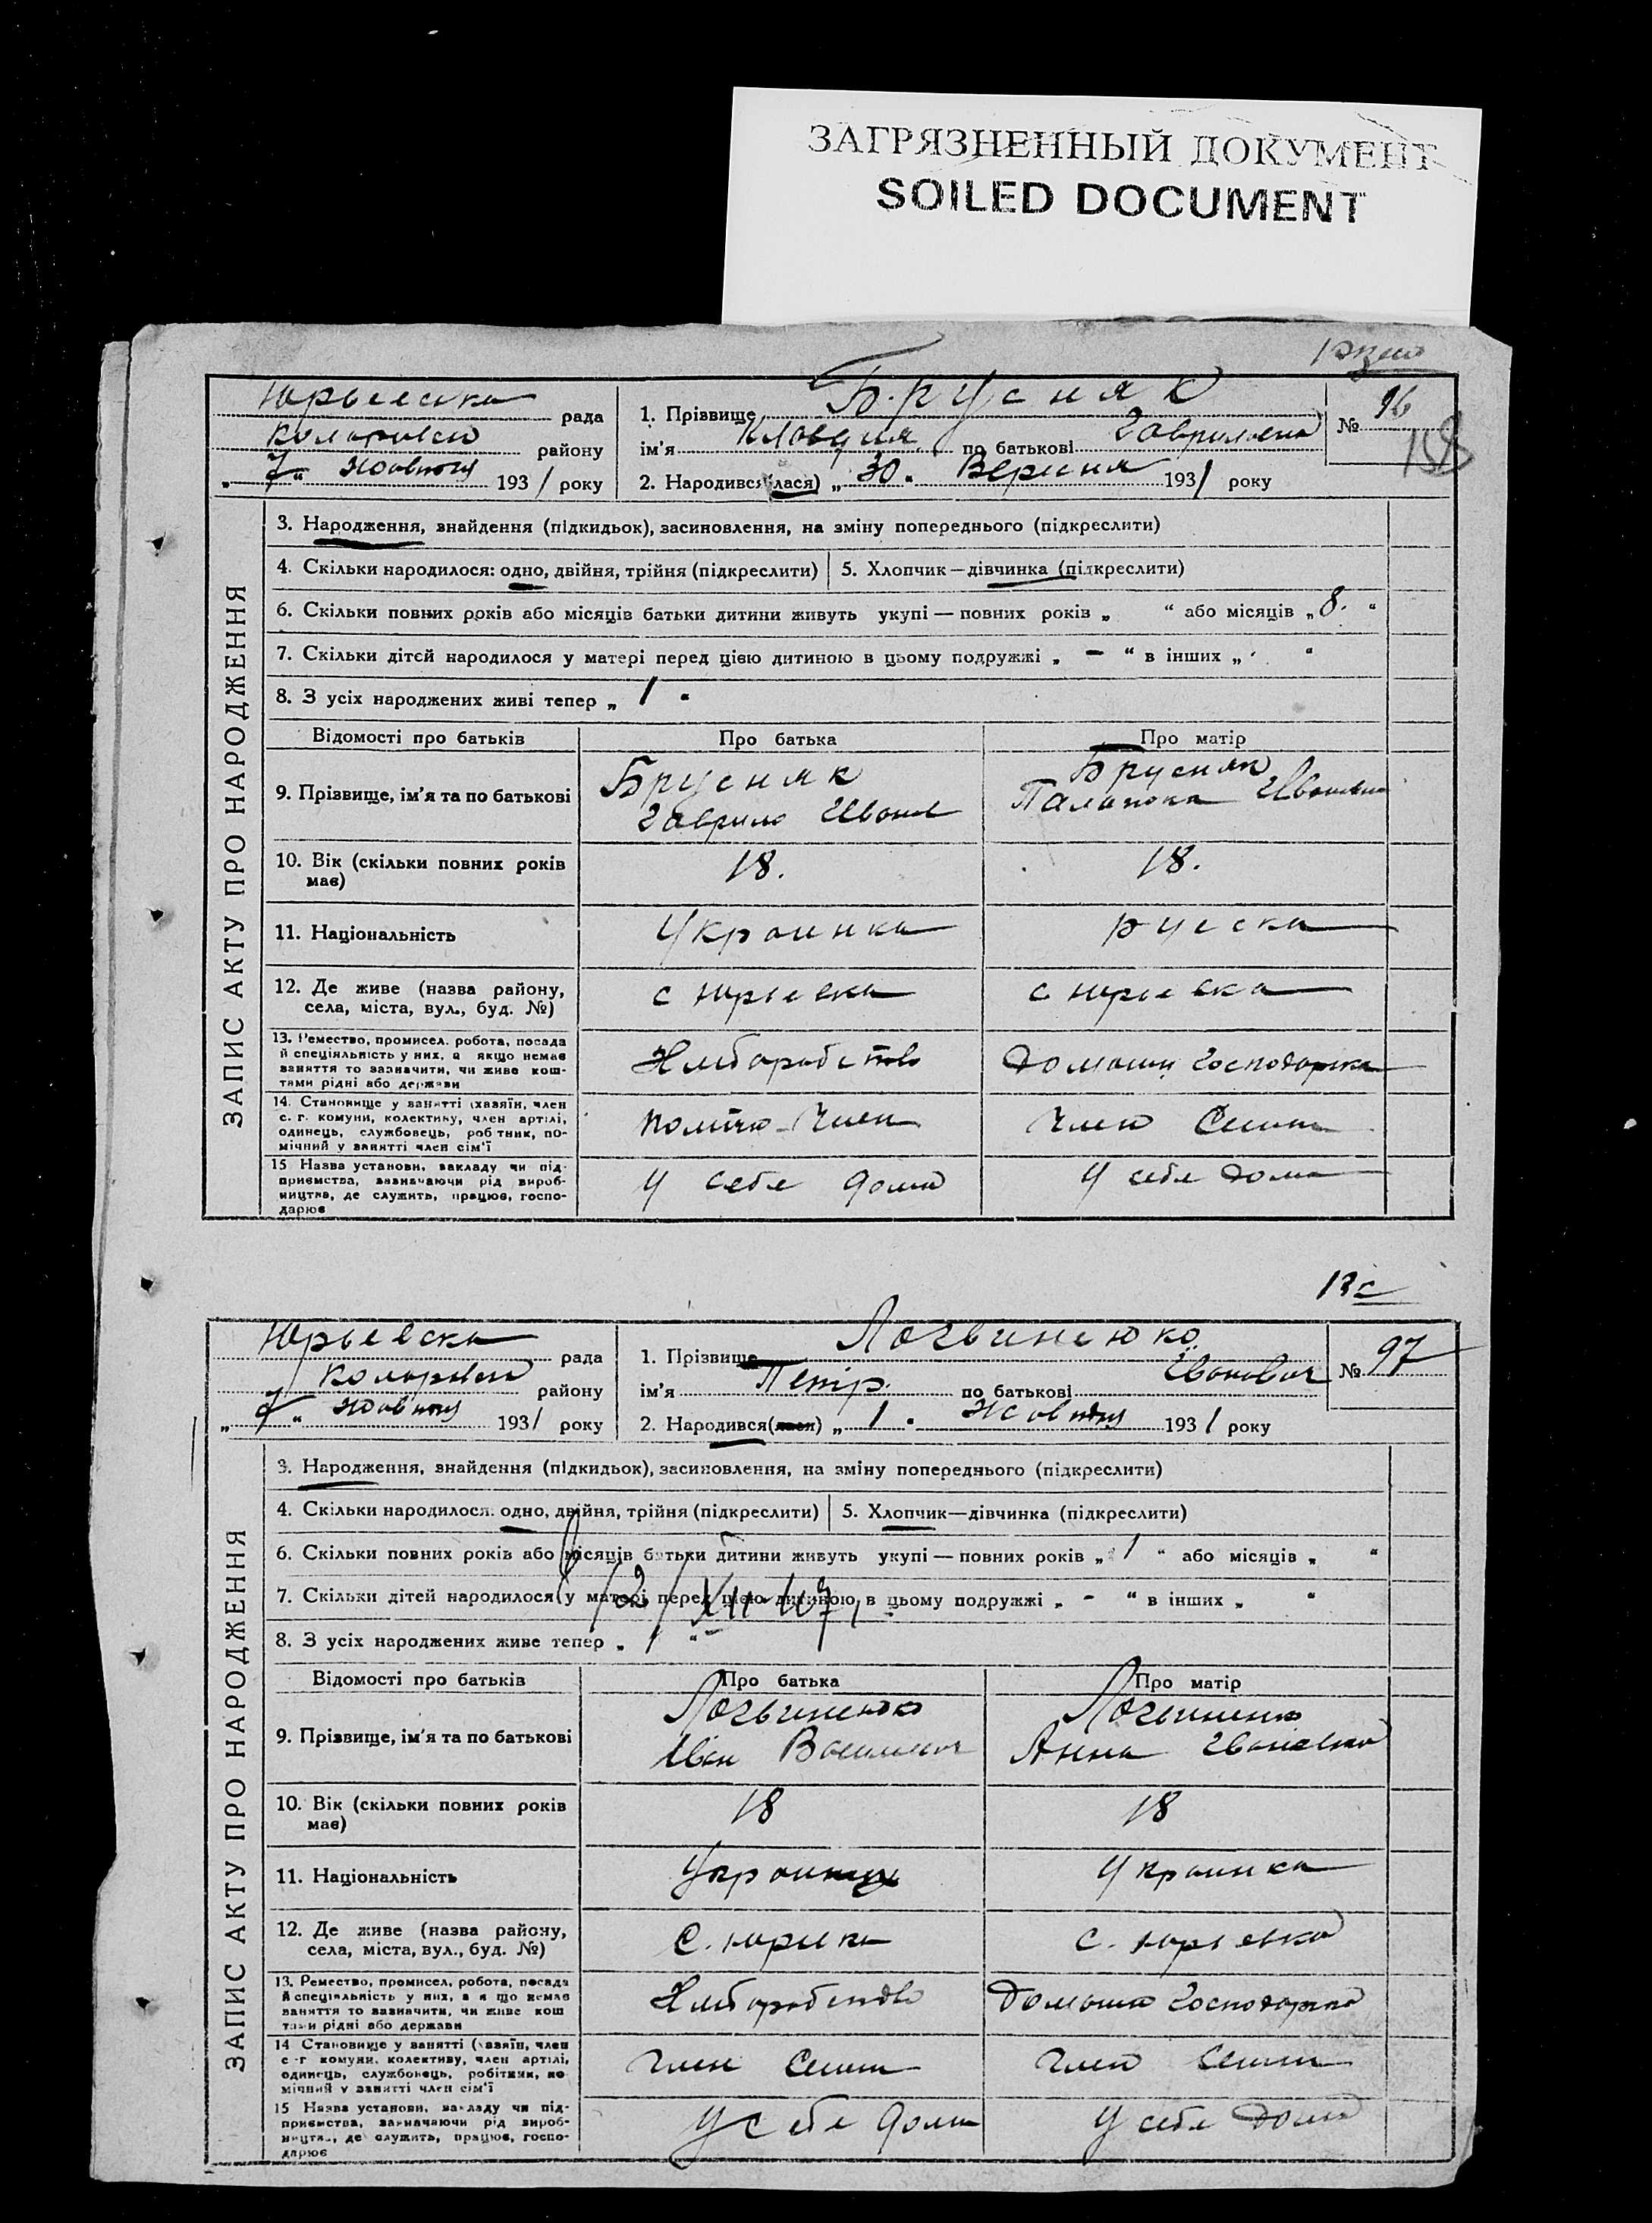 ЗАГРЯЗНЕННЫЙ ДОКУМЕНТ
SOILED DOCUMENT
Юрьевска рада
району
„7“ жовтня 1931 року
1. Прізвище Брусняк
ім'я Клавдия по батькові Гавриловна
2. Народився(лася) „30“ Вересня 1931 року
№ 96
158
ЗАПИС АКТУ ПРО НАРОДЖЕННЯ
3. Народження, знайдення (підкидьок), засиновлення, на зміну попереднього (підкреслити)
4. Скільки народилося: одно, двійня, трійня (підкреслити)
5. Хлопчик—дівчинка (підкреслити)
6. Скільки повних років або місяців батьки дитини живуть укупі — повних років „ “ або місяців „8.“
7. Скільки дітей народилося у матері перед цією дитиною в цьому подружжі „ - “ в інших „ “
8. З усіх народжених живі тепер „ 1 “
Відомості про батьків Про батька Про матір
9. Прізвище, ім'я та по батькові
Брусняк
Гаврило Иванов
Брусняк
Ивановна
10. Вік (скільки повних років має) 18. 18.
11. Національність Украинка русска
12. Де живе (назва району, села, міста, вул., буд. №) с Юрьевка с Юрьевка
13. Ремество, промисел, робота, посада
й спеціяльність у них, а якщо немає
заняття то зазначити, чи живе кош-
тами рідні або держави
Хлеборобство
Домашня Господарка
14. Становище у занятті (хазяїн, член
с.-г. комуни, колективу, член артілі,
одинець, службовець, робітник, по-
мічний у занятті член сім'ї
Член
Член Семьи
15 Назва установи, закладу чи під-
приємства, зазначаючи рід вироб-
ництва, де служить, працює, госпо-
дарює
У себе дома
У себе дома
Юрьевска рада
району
„7“ жовтня 1931 року
1. Прізвище Логвиненко
ім'я Петр. по батькові Иванович
2. Народився(лася) „1“ Жовтня 1931 року
№ 97
ЗАПИС АКТУ ПРО НАРОДЖЕННЯ
3. Народження, знайдення (підкидьок), засиновлення, на зміну попереднього (підкреслити)
4. Скільки народилося: одно, двійня, трійня (підкреслити)
5. Хлопчик—дівчинка (підкреслити)
6. Скільки повних років або місяців батьки дитини живуть укупі — повних років „ 1 “ або місяців „ “
7. Скільки дітей народилося у матері перед цією дитиною в цьому подружжі „ - “ в інших „ “
8. З усіх народжених живе тепер „ 1 “
Відомості про батьків Про батька Про матір
9. Прізвище, ім'я та по батькові
Логвиненко
Іван
Логвиненко
Анна Ивановна
10. Вік (скільки повних років має) 18 18
11. Національність Украинец Украинка
12. Де живе (назва району, села, міста, вул., буд. №) С. Юрьевка с. Юрьевка
13. Ремество, промисел, робота, посада
й спеціяльність у них, а якщо немає
заняття то зазначити, чи живе кош
тами рідні або держави
Хлеборобство
Домашня Господарка
14 Становище у занятті (хазяїн, член
с-г комуни, колективу, член артілі,
одинець, службовець, робітник, по
мічний у занятті член сім'ї
Член Семьи
Член Семьи
15 Назва установи, закладу чи під-
приємства, зазначаючи рід вироб-
ництва, де служить, працює, госпо-
дарює
У себе дома
У себе дома